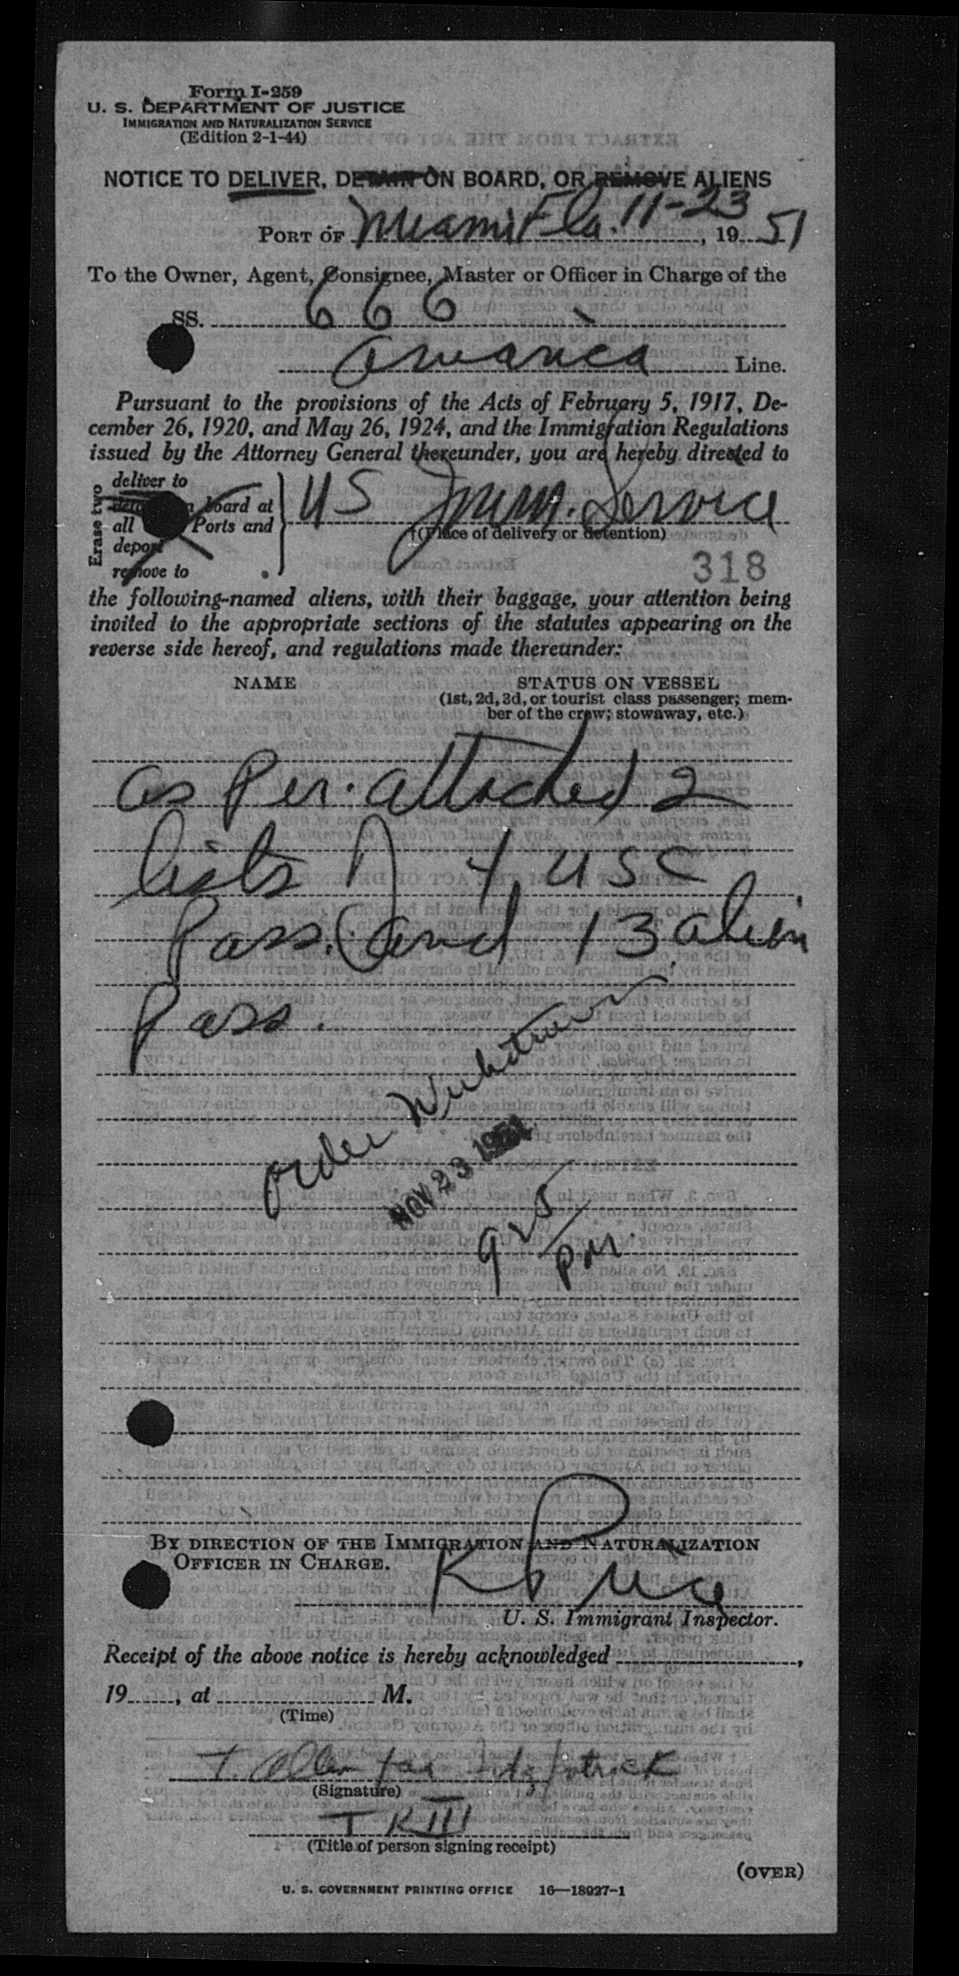 Form I-259
U. S. DEPARTMENT OF JUSTICE
IMMIGRATION AND NATURALIZATION SERVICE
(Edition 2-1-44)
NOTICE TO DELIVER, DETAIN ON BOARD, OR REMOVE ALIENS
PORT OF Miami Fla. 11-23, 1951
To the Owner, Agent, Consignee, Master or Officer in Charge of the
SS. 666
Line.
Pursuant to the provisions of the Acts of February 5, 1917, De-
cember 26, 1920, and May 26, 1924, and the Immigration Regulations
issued by the Attorney General thereunder, you are hereby directed to
Erase two
deliver to
board at
all Ports and
deport
remove to
US Imm. Service
(Place of delivery or detention)
318
the following-named aliens, with their baggage, your attention being
invited to the appropriate sections of the statutes appearing on the
reverse side hereof, and regulations made thereunder:
NAME STATUS ON VESSEL
(1st, 2d, 3d, or tourist class passenger; mem-
ber of the crew; stowaway, etc.)
as Per. attached 2
lists 4 USC
Pass. and 13 alien
Pass.
order
NOV 23 1951
925 PM
BY DIRECTION OF THE IMMIGRATION AND NATURALIZATION
OFFICER IN CHARGE.
K Price
U. S. Immigrant Inspector.
Receipt of the above notice is hereby acknowledged
19, at M.
(Time)
T. Allen Fitzpatrick
(Signature)
(Title of person signing receipt)
(OVER)
U. S. GOVERNMENT PRINTING OFFICE 16—18927-1